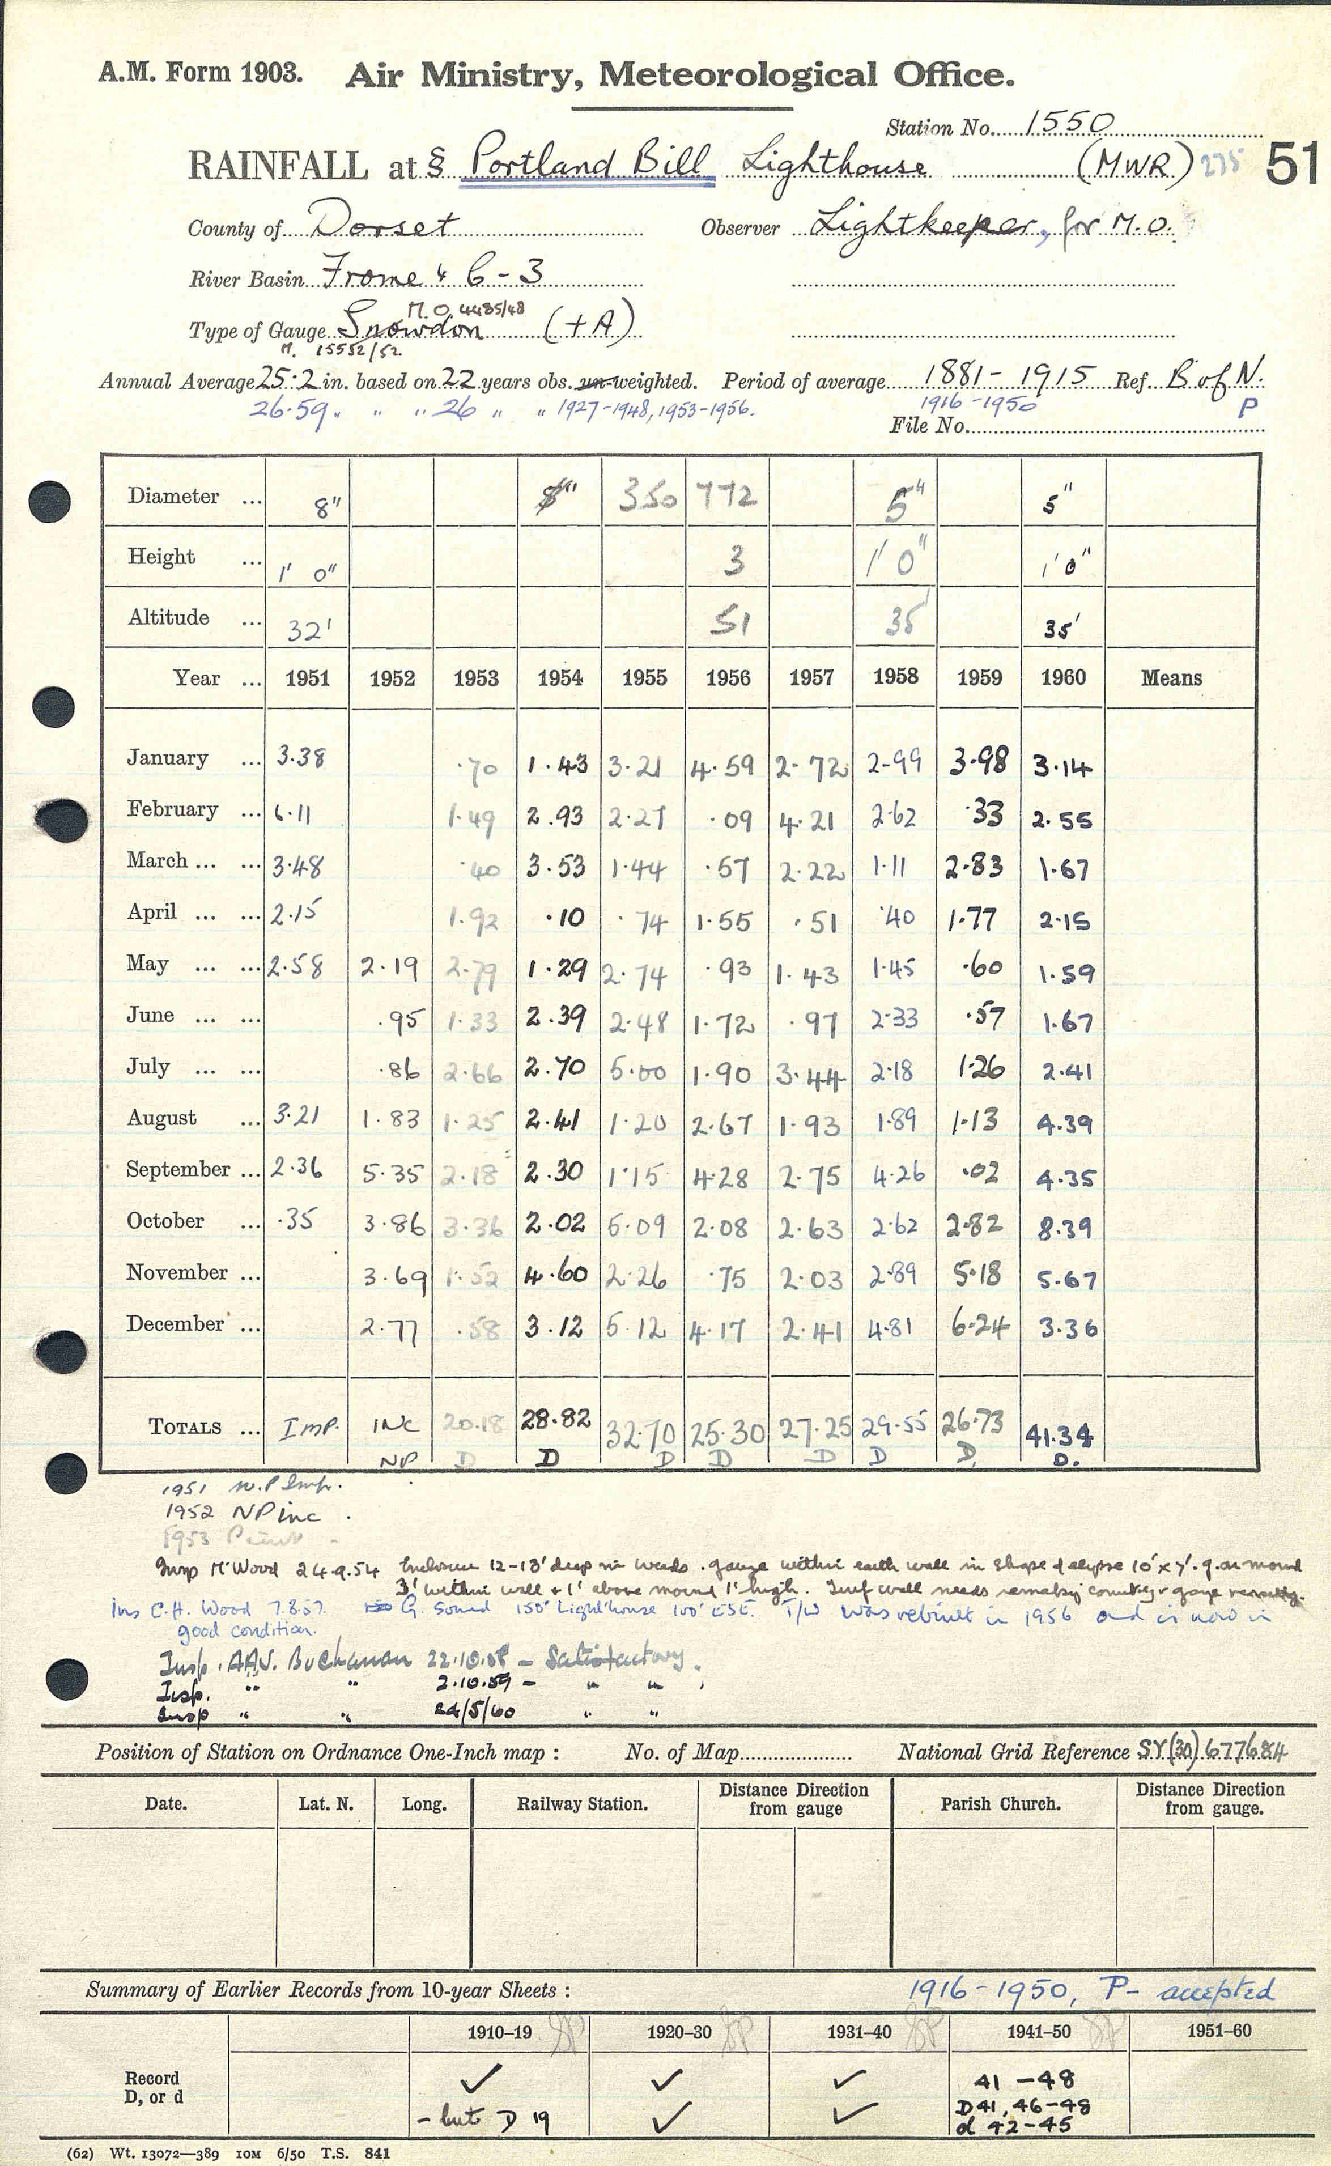 A.M. Form 1903. Air Ministry, Meteorological Office.
Station No. 1550
RAINFALL at § Portland Bill Lighthouse (MWR) 275 51
County of Dorset Observer Lightkeeper, for M.O.
River Basin Frome & C-3
M.O. 4485/48
Type of Gauge Snowdon (+A)
M. 15552/52
Annual Average 25.2 in. based on 22 years obs. un-weighted. Period of average 1881-1915 Ref. B of N.
26.59 " " " 26 " " 1927-1948, 1953-1956. 1916-1950 P
File No.
Diameter ... 8" 8" 350 772 5" 5"
Height ... 1' 0" 3 1' 0" 1' 0"
Altitude ... 32' 51 35' 35'
Year ... 1951 1952 1953 1954 1955 1956 1957 1958 1959 1960 Means
January ... 3.38 .70 1.43 3.21 4.59 2.72 2.99 3.98 3.14
February ... 6.11 1.49 2.93 2.27 .09 4.21 2.62 .33 2.55
March ... ... 3.48 .40 3.53 1.44 .57 2.22 1.11 2.83 1.67
April ... ... 2.15 1.92 .10 .74 1.55 .51 .40 1.77 2.15
May ... ... 2.58 2.19 2.79 1.29 2.74 .93 1.43 1.45 .60 1.59
June ... ... .95 1.33 2.39 2.48 1.72 .97 2.33 .57 1.67
July ... ... .86 2.66 2.70 5.00 1.90 3.44 2.18 1.26 2.41
August ... 3.21 1.83 1.25 2.41 1.20 2.67 1.93 1.89 1.13 4.39
September ... 2.36 5.35 2.18 2.30 1.15 4.28 2.75 4.26 .02 4.35
October ... .35 3.86 3.36 2.02 5.09 2.08 2.63 2.62 2.82 8.39
November ... 3.69 1.52 4.60 2.26 .75 2.03 2.89 5.18 5.67
December ... 2.77 .58 3.12 5.12 4.17 2.41 4.81 6.24 3.36
TOTALS ... Imp. INC 20.18 28.82 32.70 25.30 27.25 29.55 26.73 41.34
NP D D D D D D D. D.
1951 N.P Imp.
1952 NP inc.
1953
Insp M'Wood 24.9.54 Enclosure 12-13' deep in weeds. gauge within earth wall in shape of elipse 10'x7'. g. on mound
3' within wall + 1' above mound 1' high. Turf wall needs
Ins C.H. Wood 7.8.57. G. Sound 150' Lighthouse 100' ESE. T/W was rebuilt in 1956 and is now in
good condition.
Insp. A.A.J. Buchanan 22.10.58 - Satisfactory.
Insp. " " 2.10.59 - " "
Insp " " 24/5/60 " "
Position of Station on Ordnance One-Inch map : No. of Map National Grid Reference SY(30) 677684
Date. Lat. N. Long. Railway Station. Distance Direction from gauge Parish Church. Distance Direction from gauge.
Summary of Earlier Records from 10-year Sheets : 1916-1950, P- accepted
1910-19 1920-30 1931-40 1941-50 1951-60
Record ✓ ✓ ✓ 41 - 48
D, or d - but D 19 ✓ ✓ D 41, 46-48
d 42-45
(62) Wt. 13072—389 10M 6/50 T.S. 841